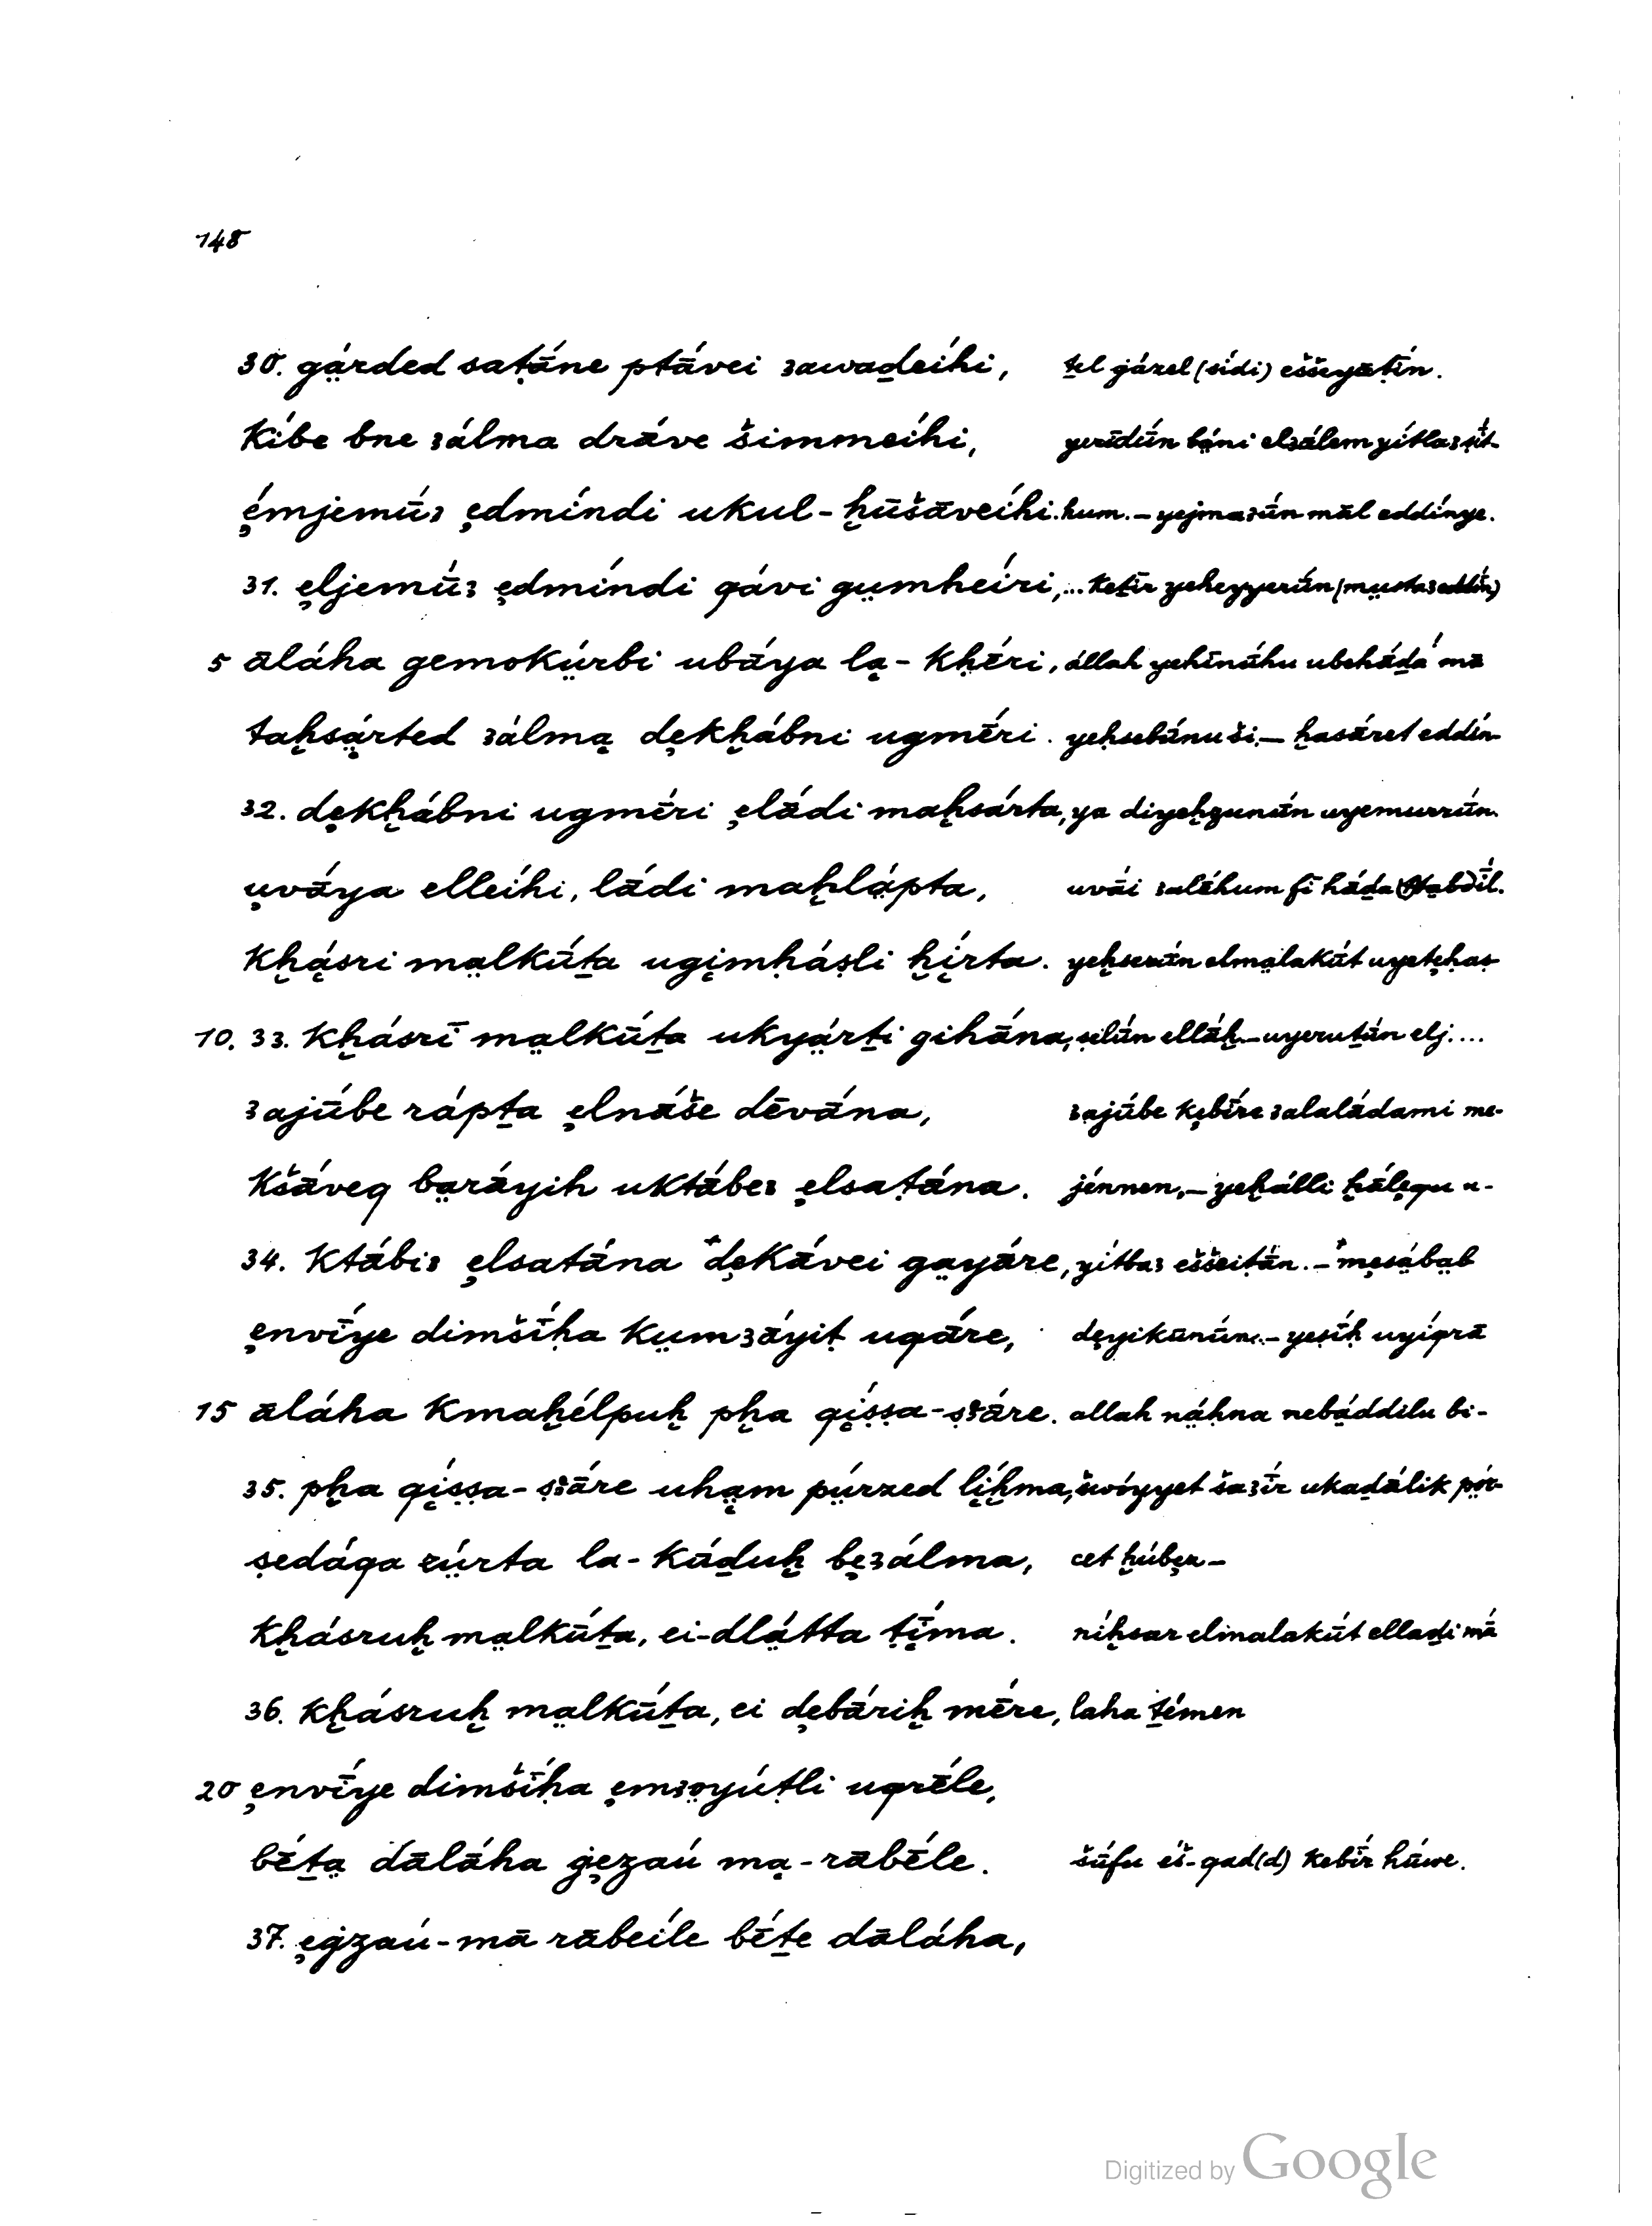 148
30. gä́rded saṭā́ne ptā́vei ɜawaḏeíhi, ṯel gázel (sídi) eššeyāṭī́n.
Kíbe bne ɜálma drā́ve šimmeíhi, yerīdū́n bä́ni elɜálem yítlaɜ ṣī́t-
ȩ́mjemū́ɜ ȩdmíndi ukul-ḫūšāveíhi. hum. – yejmaɜū́n māl eddínye.
31. ȩljemū́ɜ ȩdmíndi qávi gṳmheíri, ... keṯīr yeheyyerū́n (mustaɜeddī́n)
5 ālā́ha gemokṳ́rbi ubā́ya la̤-kḥḗri, állah yehīnā́hu ubehā́ḏá mā
taḫsä́rted ɜálma̤ dȩkḫábni ugmḗri. yeḥsebū́nu ši. – ḫasā́ret eddín-
32. dȩkḫábni ugmḗri ȩlā́di maḫsárta, ya diyeḫzunū́n uyemurrū́n.
uvā́ya elleíhi, lā́di maḫlä́pta, uvái ɜalḗhum fī hā́ḏa ttabdī́l.
Kḫásri ma̤lkū́ṯa ugi̤mḥáṣli ḫírta. yeḫserū́n elma̤lakū́t uyetȩḥaṣ-
10. 33. Kḫásrī ma̤lkū́ṯa ukyä́rṯi gihā́na, ṣilū́n ellā́ḫ. – uyeruṯū́n elj....
ɜajū́be rápṯa ȩlnā́še dēvā́na, ɜajū́be kȩbī́re ɜalalā́dami me-
Kšā́veq ba̤rā́yih uktā́beɜ ȩlsaṭā́na. jénnen, – yeḫálli ḫā́lȩqu u-
34. Ktā́biɜ ȩlsatā́na *dȩkā́vei ga̤yā́re, yítbaɜ eššeiṭā́n. – *mȩsä́ba̤b
ȩnvī́ye dimšī́ḥa kṳmɜā́yiṭ uqā́re, dȩyikūnū́n. – yeṣī́ḥ uyíqrā
15 ālā́ha Kmaḫélpuḫ pḫa qi̤ṣṣa-ṣɜā́re. allah nä́ḥna nebä́ddilu bi-
35. pḫa qi̤ṣṣa-ṣɜā́re uha̤m pṳ́rzed li̤ḫma, šwóyyet šaɜī́r ukaḏā́lik pör-
ṣedā́qa zṳ́rta la-kū́ḏuḫ bȩɜálma, cet ḫúbȩz –
Kḫásruḫ ma̤lkū́ṯa, ei-dlä́tta ṭi̤ma. níḫsar elmalakū́t ellaḏi mā
36. Kḫásruḫ ma̤lkū́ṯa, ei dȩbā́riḫ mḗre, laha ṯémen
20 ȩnvī́ye dimšī́ḥa ȩmɜo̤yúṭli uqrḗle,
bḗṯa̤ dālā́ha ġȩzaú ma̤-rābḗle. šū́fu éš-qad(d) kebī́r húwe.
37. ȩġzaú-mā rābeíle bḗṯe dālā́ha,
Digitized by Google